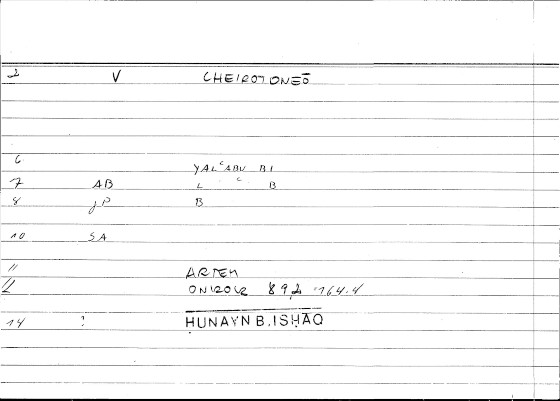 2 V CHEIROTONEŌ
6 YALʿABU BI
7 AB L ʿ B
8 JP B
10 SA
11 ARTEM
12 ONIROCR 89,2 164.4
14 : HUNAYN B. ISḤĀQ